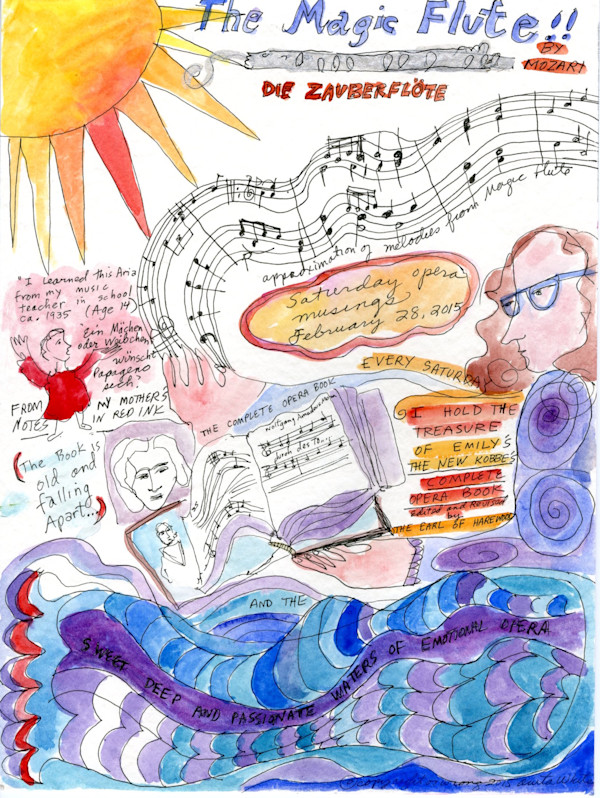 The Magic Flute!!
BY
MOZART
DIE ZAUBERFLÖTE
approximation of melodies from Magic Flute
Saturday opera
musings
February 28, 2015
"I learned this Aria
from my music
teacher in school
ca. 1935 (Age 14)
Ein Mächen
oder Weibchen
wünscht
Papageno
sich?
FROM MY MOTHERS
NOTES IN RED INK
EVERY SATURDAY
THE COMPLETE OPERA BOOK
Wolfgang Amadeus
I HOLD THE
TREASURE
OF EMILY'S
THE NEW KOBBES
COMPLETE
OPERA BOOK
edited and Revised
by
THE EARL OF HAREWOOD
(The Book is
old and
falling
Apart...)
AND THE
SWEET DEEP AND PASSIONATE WATERS OF EMOTIONAL OPERA
2015